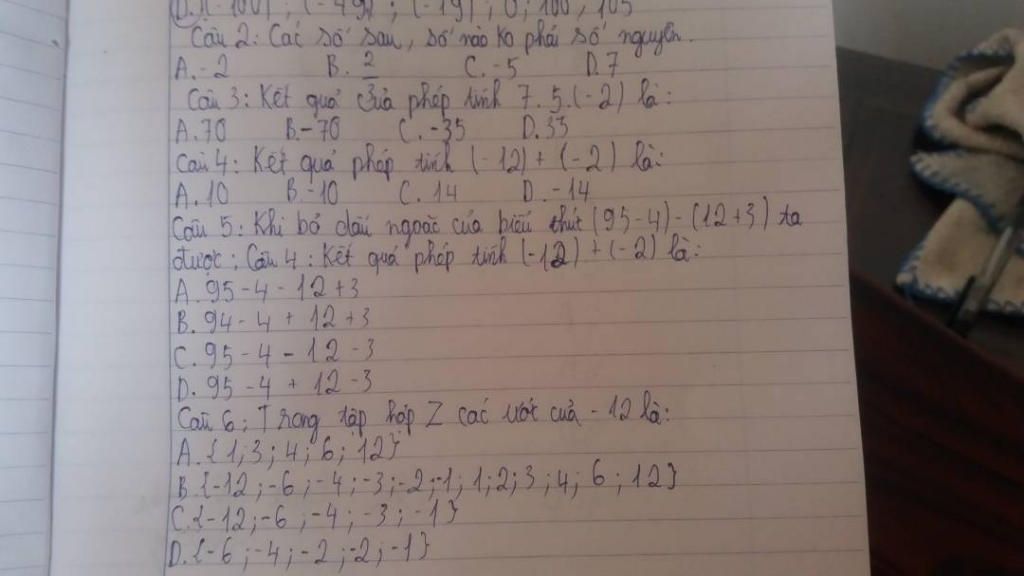 D. {(-100) ; (-49) ; (-19) ; 0 ; 100 ; 105
Câu 2: Các số sau, số nào ko phải số nguyên.
A. -2 B. 2/3 C. -5 D. 7
Câu 3: Kết quả của phép tính 7. 5. (-2) là:
A. 70 B. -70 C. -35 D. 35
Câu 4: Kết quả phép tính (-12) + (-2) là:
A. 10 B. -10 C. 14 D. -14
Câu 5: Khi bỏ dấu ngoặc của biểu thức (95-4) - (12+3) ta
được: Câu 4: Kết quả phép tính (-12) + (-2) là:
A. 95 - 4 - 12 + 3
B. 94 - 4 + 12 + 3
C. 95 - 4 - 12 - 3
D. 95 - 4 + 12 - 3
Câu 6: Trong tập hợp Z các ước của -12 là:
A. {1; 3; 4; 6; 12}
B. {-12; -6; -4; -3; -2; -1; 1; 2; 3; 4; 6; 12}
C. {-12; -6; -4; -3; -1}
D. {-6; -4; -2; -2; -1}